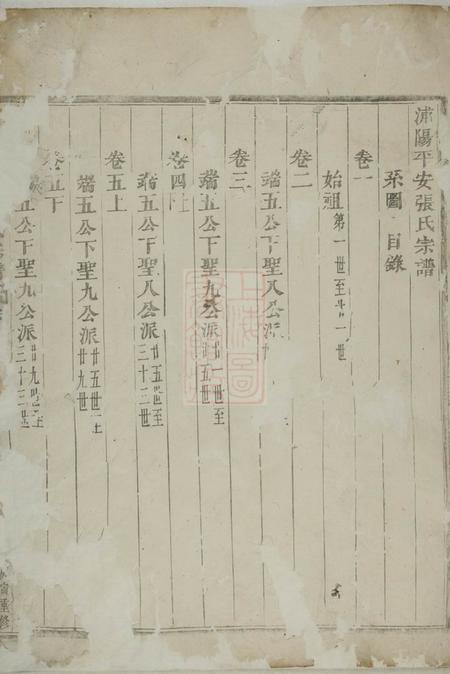 浦陽平安張氏宗譜
系圖 目錄
卷一
始祖第一世至廿一世
卷二
端五公下聖八公派廿
卷三
端五公下聖九公派廿一世至廿五世
卷四上
端五公下聖八公派廿五世至三十三世
卷五上
端五公下聖九公派廿五世至廿九世
卷五下
五公下聖九公派廿九世至三十三世
重修
上海圖